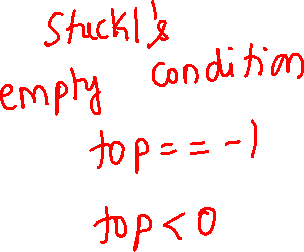 Stuck1's
empty condition
top == -1
top < 0